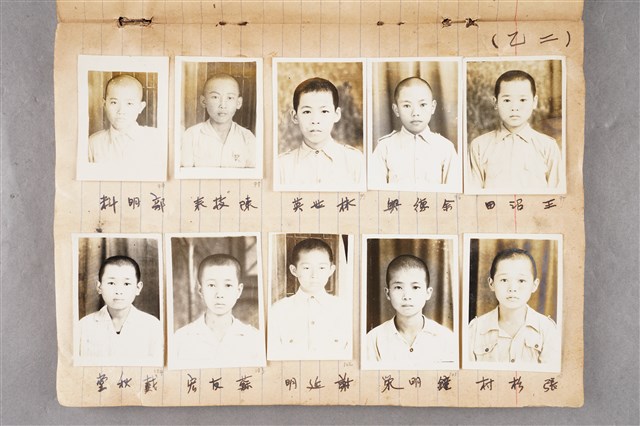 （乙二）
王沼田 余德興 林世英 陳枝來 鄭明科
張杉村 鍾明榮 謝近明 蘇友宏 戴秋堂